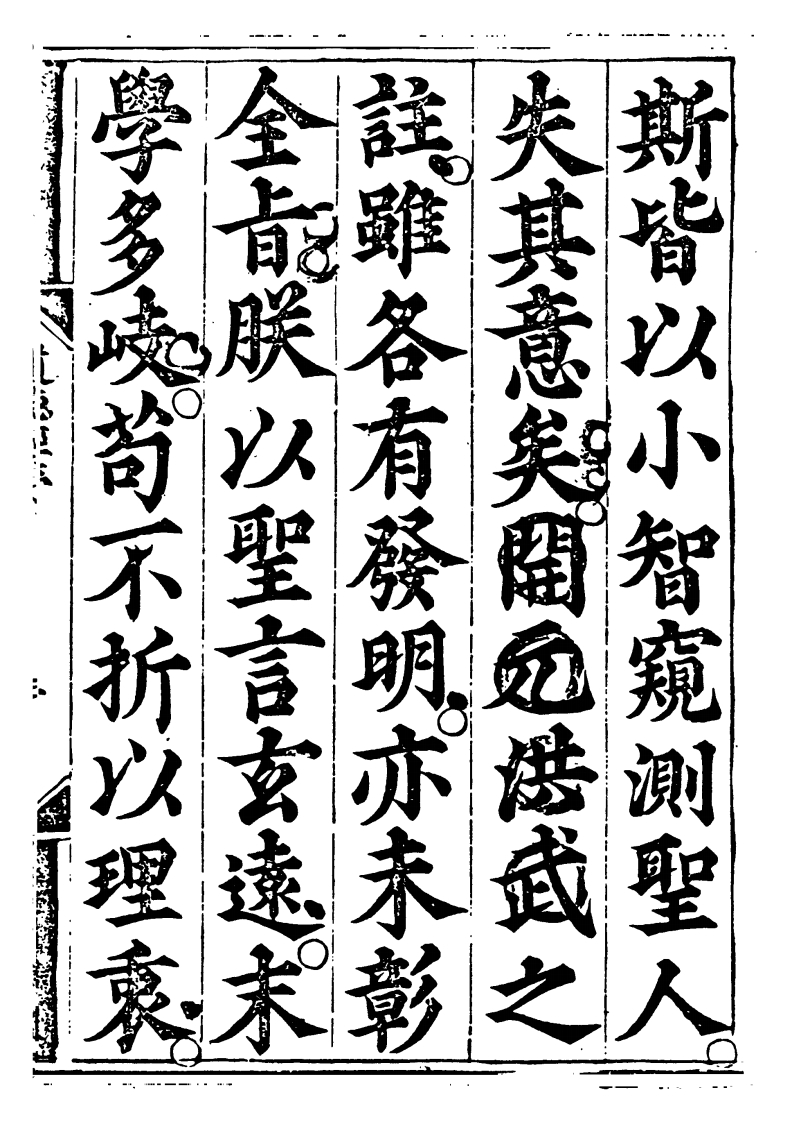 斯皆以小智窺測聖人
失其意矣開元洪武之
註雖各有發明亦未彰
全旨朕以聖言玄遠末
學多岐苟不折以理衷